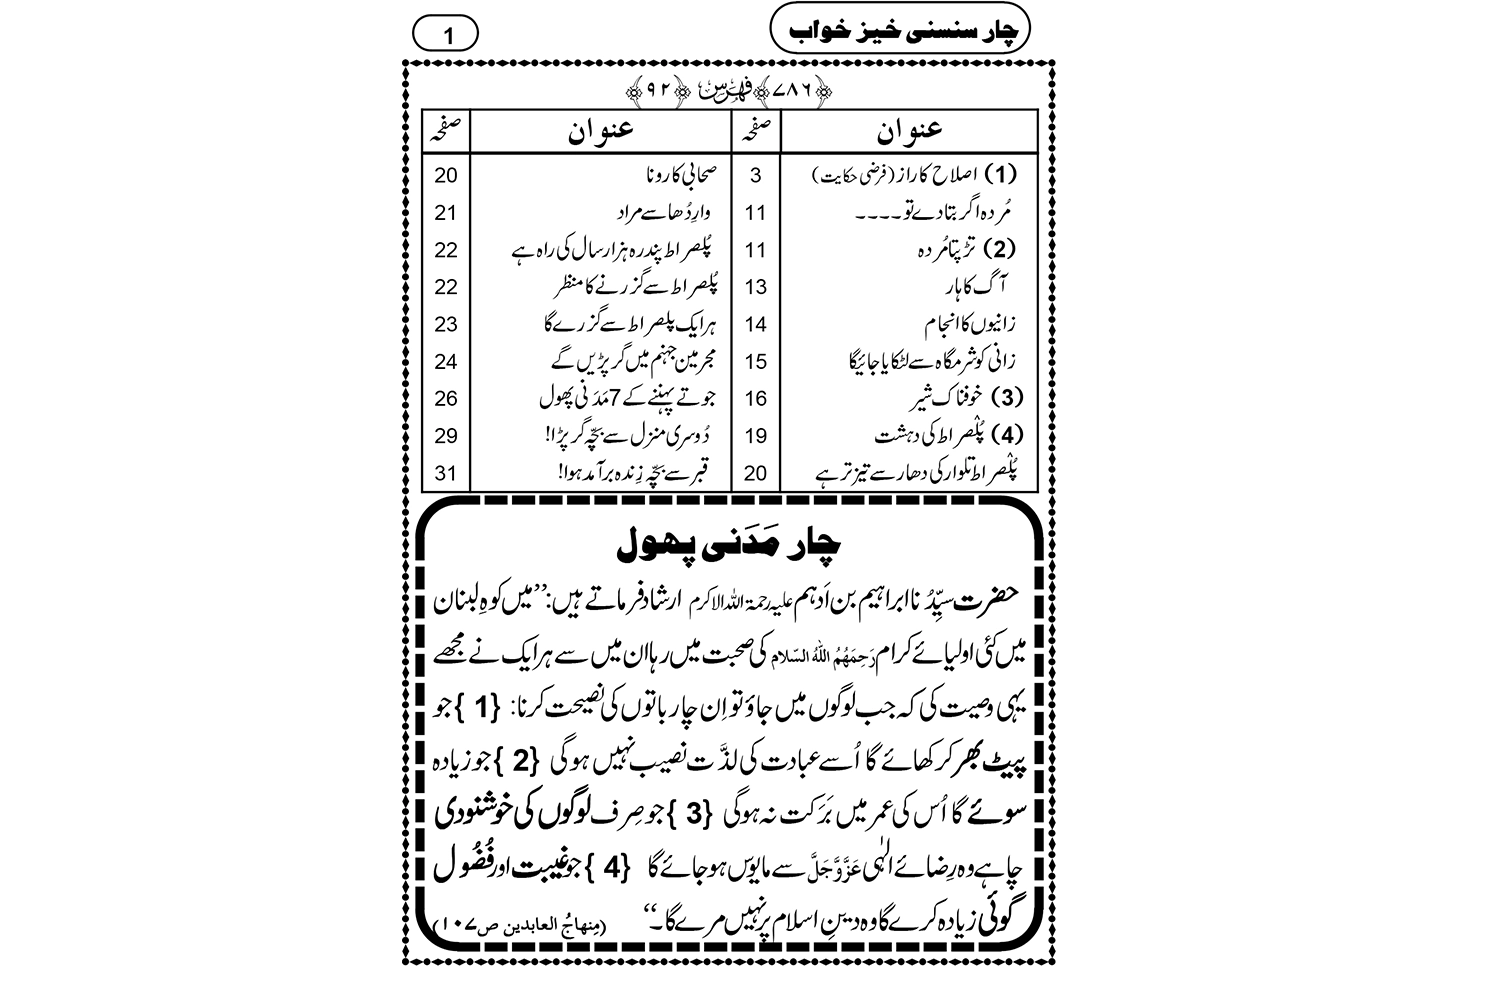 چار سنسنی خیز خواب
1
﴿۷۸۶﴾ فہرس ﴿۹۲﴾
عنوان صفحہ عنوان صفحہ
(1) اصلاح کا راز (فرضی حکایت) 3 صحابی کا رونا 20
مُردہ اگر بتا دے تو ۔۔۔۔ 11 وارِدُھا سے مراد 21
(2) تڑپتا مُردہ 11 پُلصراط پندرہ ہزار سال کی راہ ہے 22
آگ کا ہار 13 پُلصراط سے گزرنے کا منظر 22
زانیوں کا انجام 14 ہر ایک پلصراط سے گزرے گا 23
زانی کو شرمگاہ سے لٹکایا جائیگا 15 مجرمین جہنم میں گر پڑیں گے 24
(3) خوفناک شیر 16 جوتے پہننے کے 7 مَدَنی پھول 26
(4) پُلْصراط کی دہشت 19 دُوسری منزل سے بچّہ گر پڑا! 29
پُلْصراط تلوار کی دھار سے تیز تر ہے 20 قبر سے بچّہ زِندہ برآمد ہوا! 31
چار مَدَنی پھول
حضرت سیِّدُنا ابراہیم بن اَدہم علیہ رحمۃ اللہ الاکرم ارشاد فرماتے ہیں: ’’میں کوہِ لبنان
میں کئی اولیائے کرام رَحِمَهُمُ اللهُ السّلام کی صحبت میں رہا ان میں سے ہر ایک نے مجھے
یہی وصیت کی کہ جب لوگوں میں جاؤ تو اِن چار باتوں کی نصیحت کرنا: {1} جو
پیٹ بھر کر کھائے گا اُسے عبادت کی لذَّت نصیب نہیں ہوگی {2} جو زیادہ
سوئے گا اُس کی عمر میں بَرَکت نہ ہوگی {3} جو صِرف لوگوں کی خوشنودی
چاہے وہ رِضائے الٰہی عَزَّوَجَلَّ سے مایوس ہو جائے گا {4} جو غیبت اور فُضُول
گوئی زیادہ کرے گا وہ دینِ اسلام پر نہیں مرے گا۔‘‘ (مِنهاجُ العابدین ص۱۰۷)